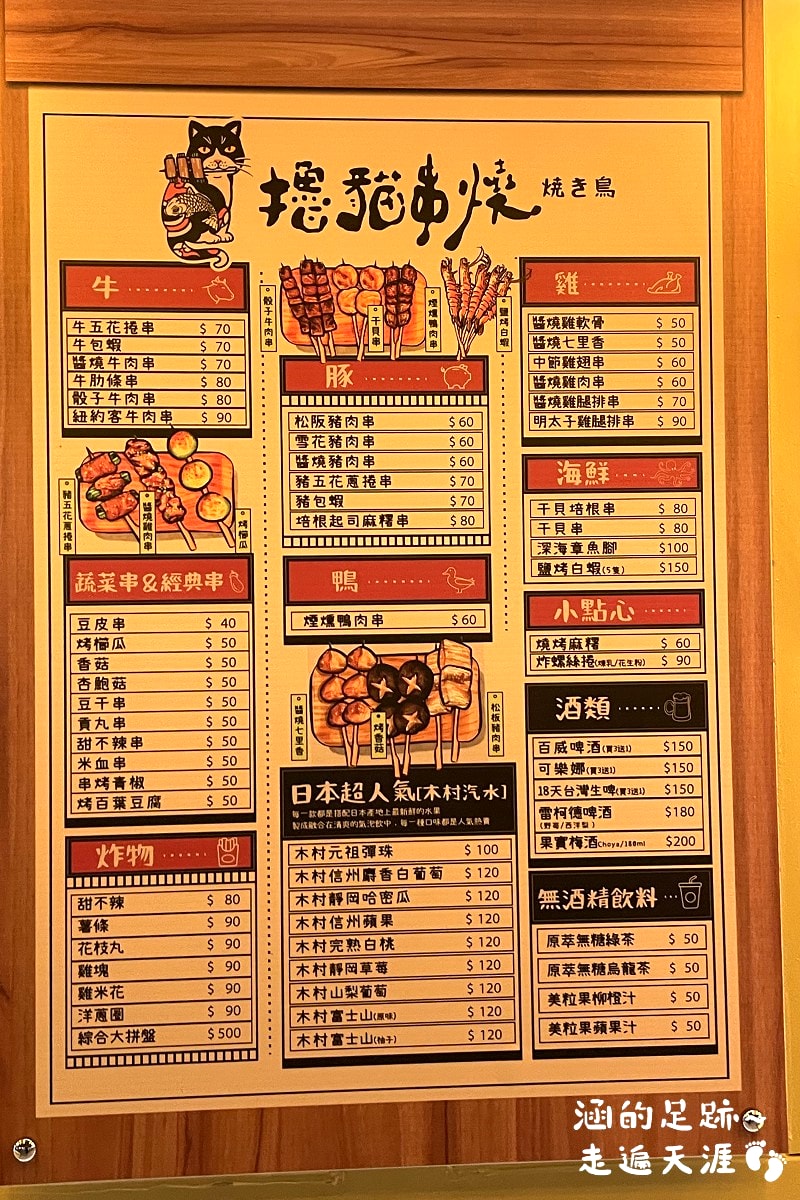 擼貓串燒 焼き鳥
牛
牛五花捲串 $ 70
牛包蝦 $ 70
醬燒牛肉串 $ 70
牛肋條串 $ 80
骰子牛肉串 $ 80
紐約客牛肉串 $ 90
豬五花蔥捲串
醬燒雞肉串
烤櫛瓜
蔬菜串&經典串
豆皮串 $ 40
烤櫛瓜 $ 50
香菇 $ 50
杏鮑菇 $ 50
豆干串 $ 50
貢丸串 $ 50
甜不辣串 $ 50
米血串 $ 50
串烤青椒 $ 50
烤百葉豆腐 $ 50
炸物
甜不辣 $ 80
薯條 $ 90
花枝丸 $ 90
雞塊 $ 90
雞米花 $ 90
洋蔥圈 $ 90
綜合大拼盤 $500
骰子牛肉串
干貝串
煙燻鴨肉串
鹽烤白蝦
豚
松阪豬肉串 $60
雪花豬肉串 $60
醬燒豬肉串 $60
豬五花蔥捲串 $70
豬包蝦 $70
培根起司麻糬串 $80
鴨
煙燻鴨肉串 $60
醬燒七里香
烤香菇
松板豬肉串
日本超人氣[木村汽水]
每一款都是搭配日本產地上最新鮮的水果
製成融合在清爽的氣泡飲中，每一種口味都是人氣熱賣
木村元祖彈珠 $ 100
木村信州麝香白葡萄 $ 120
木村靜岡哈密瓜 $ 120
木村信州蘋果 $ 120
木村完熟白桃 $ 120
木村靜岡草莓 $ 120
木村山梨葡萄 $ 120
木村富士山(原味) $ 120
木村富士山(柚子) $ 120
雞
醬燒雞軟骨 $ 50
醬燒七里香 $ 50
中節雞翅串 $ 60
醬燒雞肉串 $ 60
醬燒雞腿排串 $ 70
明太子雞腿排串 $ 90
海鮮
干貝培根串 $ 80
干貝串 $ 80
深海章魚腳 $100
鹽烤白蝦(5隻) $150
小點心
燒烤麻糬 $ 60
炸螺絲捲(煉乳/花生粉) $ 90
酒類
百威啤酒(買3送1) $150
可樂娜(買3送1) $150
18天台灣生啤(買3送1) $150
雷柯德啤酒 $180
(野莓/西洋梨)
果實梅酒Choya/180ml $200
無酒精飲料
原萃無糖綠茶 $ 50
原萃無糖烏龍茶 $ 50
美粒果柳橙汁 $ 50
美粒果蘋果汁 $ 50
涵的足跡
走遍天涯